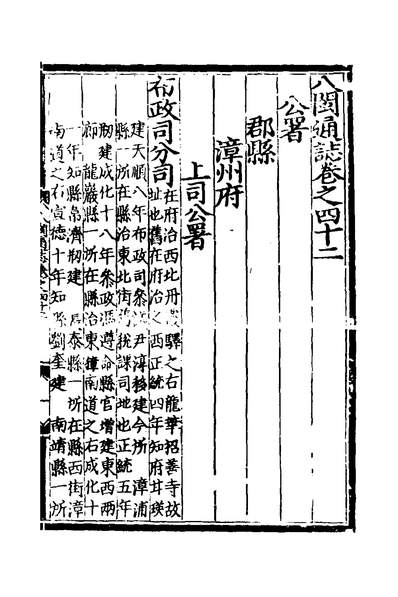 八閩通誌卷之四十二
公署
郡縣
漳州府
上司公署
布政司分司
在府治西北丹霞驛之右龍華招善寺故
址也舊在府治之西正統四年知府甘瑛
建天順八年布政司參政尹淳移建今所 漳浦
縣一所在縣治東北街舊稅課司地也正統五年
剏建成化十八年參政馮遵命縣官增建東西兩
廊 龍巖縣一所在縣治東漳南道之右成化十
一年知縣 濟剏建 長泰縣一所在縣西街漳
南道之右宣德十年知縣劉奎建 南靖縣一所